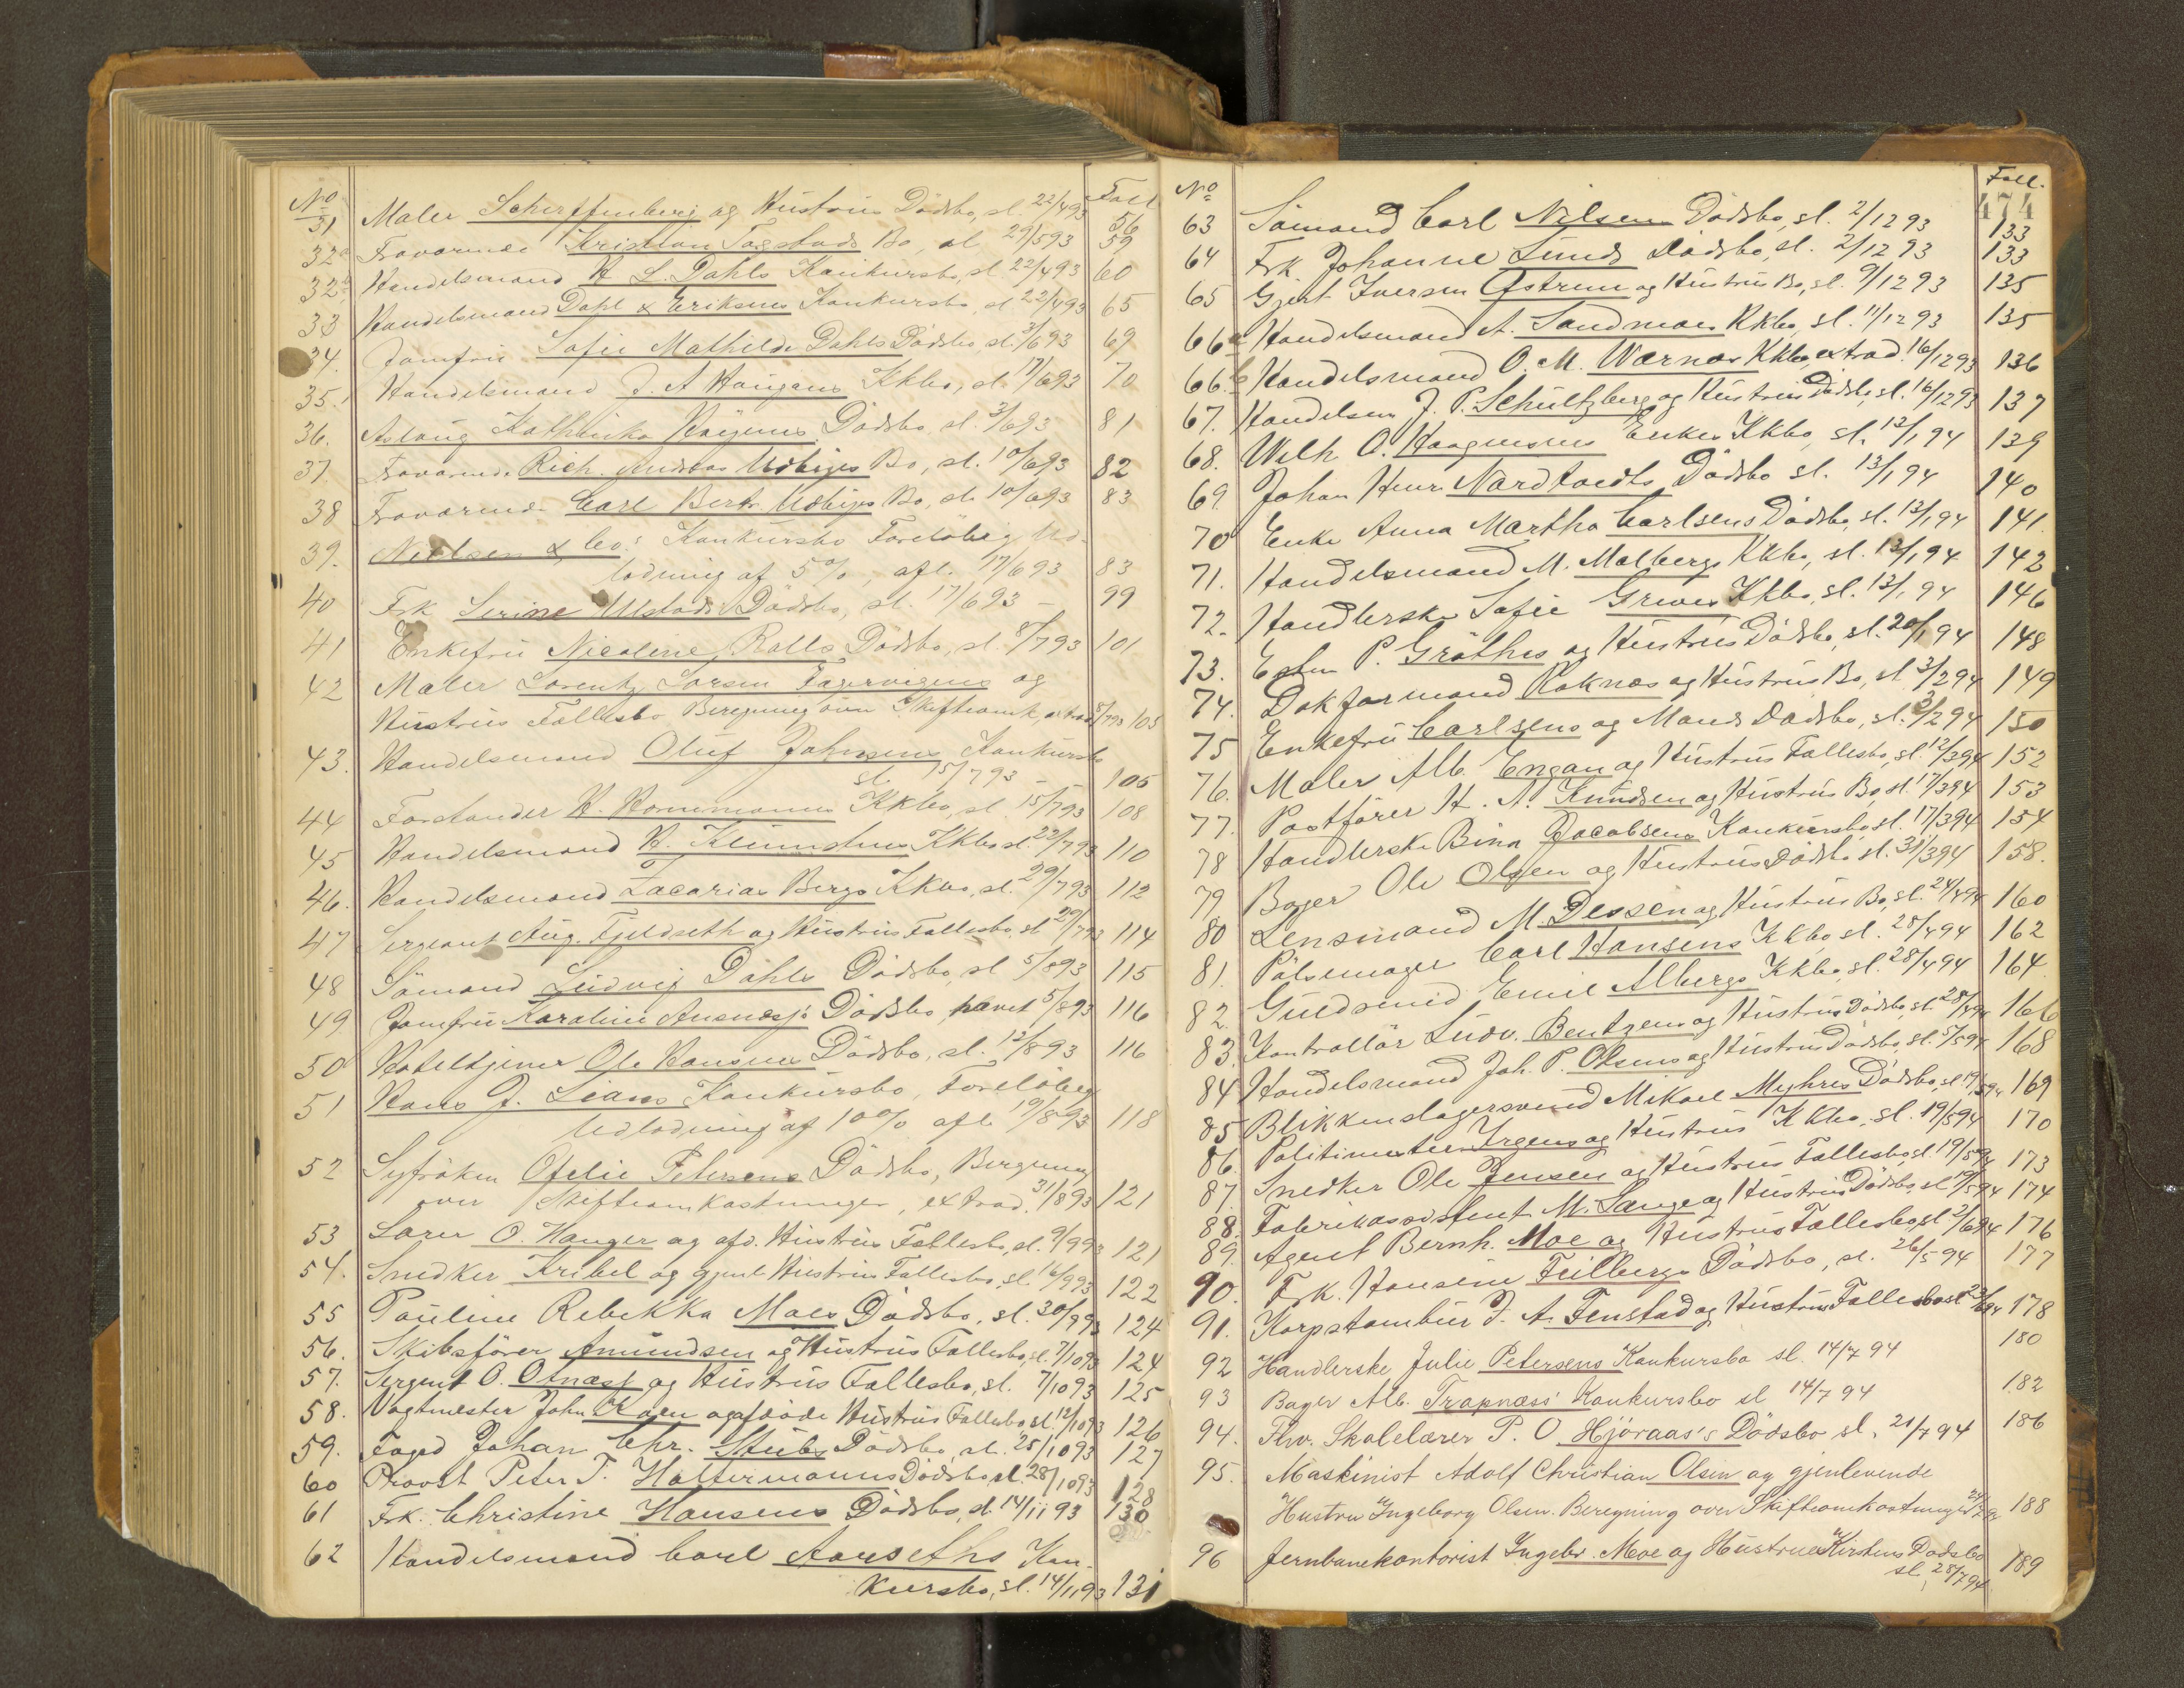 No Foll
31 Maler Scherffenberg og Hustrus Dødsbo, sl. 22/4 93 56
32a Fraværende Kristian Tagstads Bo, sl 29/5 93 59
32b Handelsmand H. L. Dahls Konkursbo, sl 22/4 93 60
33 Handelsmand Dahl & Eriksens Konkursbo, sl 22/4 93 65
34. Jomfru Sofie Mathilde Dahls Dødsbo sl. 3/6 93 69
35. Handelsmand J. A Haugans Kkbo, sl. 17/6 93 70
36. Aslaug Kathinka Dødsbo sl. 3/6 93 81
37. Fraværende Rich. Andreas Udbyes Bo, sl. 10/6 93 82
38 Fraværende Carl Berth Udbyes Bo, sl. 10/6 93 83
39. Nielsen & Co.s Konkursbo Foreløbig Ud-
lodning af 5 %, afl. 17/6 93 83
40 Frk Serine Ulstads Dødsbo, sl. 17/6 93 – 99
41 Enkefru Nicoline Rolls Dødsbo, sl. 8/7 93 101
42 Maler Lorentz Larsen Fagervigens og
Hustrus Fællesbo Beregning over Skifteomk, extrad 8/7 93 105
43. Handelsmand Oluf Johnsens Konkursbo
sl. 15/7 93 – 105
44 Forstander H. Hornemanns Kkbo, sl 15/7 93 108
45 Handelsmand H. Kkbo sl. 22/7 93 110
46. Handelsmand Zacarias Bergs Kkbo, sl. 29/7 93 112
47 Sergeant Aug. Fjeldseth og Hustrus Fællesbo, sl 29/7 93 114
48 Sømand Ludvig Dahls Dødsbo, sl 5/8 93 115
49 Jomfru Karoline Dødsbo, hævet 5/8 93 116
50 Hotelltjener Ole Hansens Dødsbo, sl. 12/8 93 116
51 Hans J. Lians Konkursbo, Foreløbig
Udlodning af 10 % afl. 19/8 93 118
52 Syfrøken Ofelie Petersens Dødsbo, Beregning
over Skifteomkostninger, extrad. 31/8 93 121
53 Lærer O. Hanger og afd. Hustrus Fællesbo, sl. 9/9 93 121
54. Snedker Kribel og gjenl Hustrus Fællesbo, sl. 16/9 93 122
55 Pauline Rebekka Moes Dødsbo, sl. 30/9 93 124
56. Skibsfører Amundsen og Hustrus Fællesbo, sl. 7/10 93 124
57. Sergent O. Olnæss og Hustrus Fællesbo, sl. 7/10 93 125
58. Vagtmester John Koen og afdøde Hustrus Fællesbo sl 12/10 93 126
59. Foged Johan Chr. Stubs Dødsbo, sl. 25/10 93 127
60 Provst Peter T. Holtermanns Dødsbo sl. 28/10 93 128
61 Frk. Christine Hansens Dødsbo, sl. 14/11 93 130
62 Handelsmand Carl Aarseths Kon-
kursbo, sl. 14/11 93 131
No Foll.
474
63 Sømand Carl Nilsens Dødsbo, sl. 2/12 93 133
64 Frk Johanne Lunds Dødsbo, sl. 2/12 93 133
65 Gjert Iversen Østrem og Hustrus Bo, sl. 9/12 93 135
66a Handelsmand A. Sandmoes Kkbo, sl. 11/12 93 135
66.b Handelsmand O. M. Wærnæs Kkbo, extrad. 16/12 93 136
67. Handelsm J. P. Schultzberg og Hustrus Dødsbo, sl. 16/12 93 137
68. Wilh. O. Haagensens Enkes Kkbo, sl. 13/1 94 139
69. Johan Henr Nordtvedts Dødsbo sl. 13/1 94 140
70 Enke Anna Martha Carlsens Dødsbo, sl. 13/1 94 141
71. Handelsmand M. Malbergs Kkbo, sl. 13/1 94 142
72. Handlerske Sofie Greves Kkbo, sl. 13/1 94 146
73. P. Grøthes og Hustrus Dødsbo, sl. 20/1 94 148
74. Dokformand Roknæs og Hustrus Bo, sl 3/2 94 149
75 Enkefru Carlsens og Mands Dødsbo, sl. 3/2 94 150
76. Maler Alb. Engan og Hustrus Fællesbo, sl. 12/3 94 152
77. Postfører H. A. Knudsen og Hustrus Bo, sl. 17/3 94 153
78 Handlerske Bina Jacobsens Konkursbo, sl. 17/3 94 154
79 Bager Ole Olsen og Hustrus Dødsbo sl. 31/3 94 158.
80 Lensmand M. Dessen og Hustrus Bo, sl. 24/4 94 160
81. Pølsemager Carl Hansens Kkbo sl. 28/4 94 162
82. Guldsmid Emil Albergs Kkbo, sl. 28/4 94 164
83. Kontrollør Ludv. Bentzens og Hustrus Dødsbo, sl. 28/4 94 166
84 Handelsmand Joh. P. Olsens og Hustrus Dødsbo, sl. 5/5 94 168
85 Blikkenslagersvend Mikael Myhres Dødsbo, sl 19/5 94 169
86. Politimester Irgens og Hustrus Kkbo, sl. 19/5 94 170
87. Snedker Ole Jensen og Hustrus Fællesbo, sl. 19/5 94 173
88. Fabrikassistent M. Lange og Hustrus Dødsbo, sl 19/5 94 174
89. Agent Bernh. Moe og Hustrus Fællesbo, sl 2/6 94 176
90. Frk. Hansine Feilbergs Dødsbo, sl. 26/5 94 177
91. Korpstambur J. A. Fenstad og Hustrus Fællesbo sl 23/6 94 178
92 Handlerske Julie Petersens Konkursbo sl. 14/7 94 180
93 Bager Alb. Trapnæss' Konkursbo sl 14/7 94 182
94. Fhv. Skolelærer P. O. Hjøraas's Dødsbo sl. 21/7 94 186
95. Maskinist Adolf Christian Olsen og gjenlevende
Hustru Ingeborg Olsen. Beregning over Skifteomkostninger 188
96 Jernbanekontorist Ingebr. Moe og Hustrue Kirstens Dødsbo
sl, 28/7 94 189